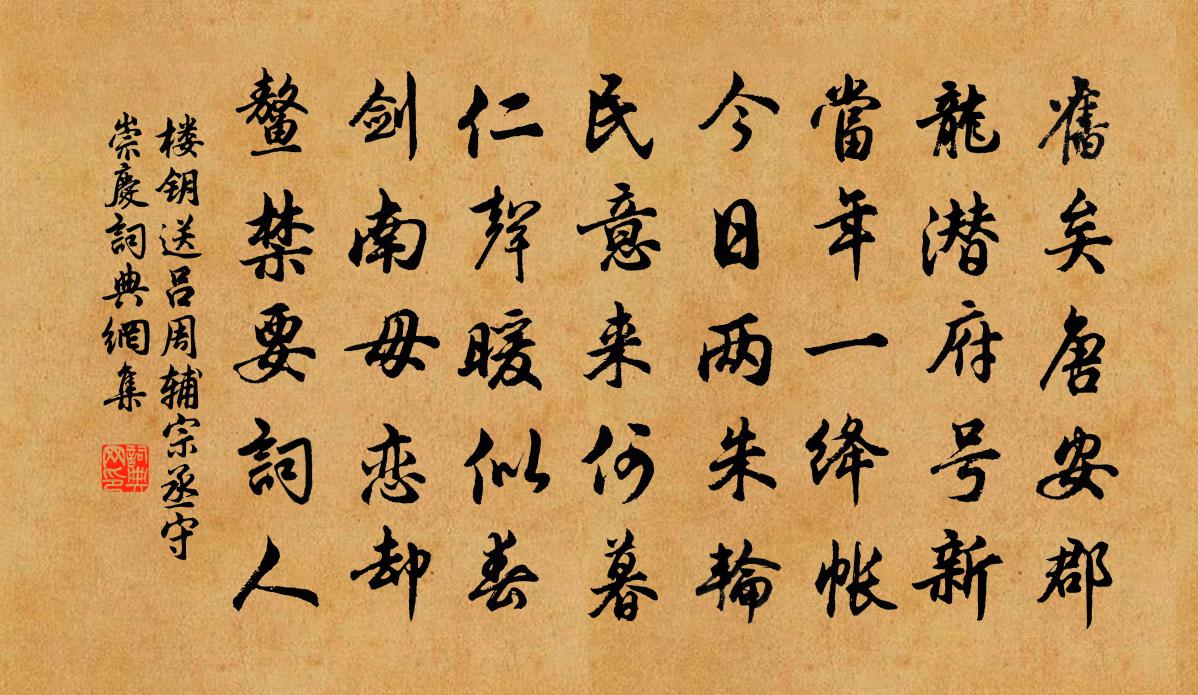 舊矣唐安郡
龍潜府号新
當年一绛帐
今日两朱輪
民意来何暮
仁聲暖似春
剑南毋恋却
鳌禁要詞人
楼钥送吕周辅宗丞守
崇慶詞典網集
詞典
网印